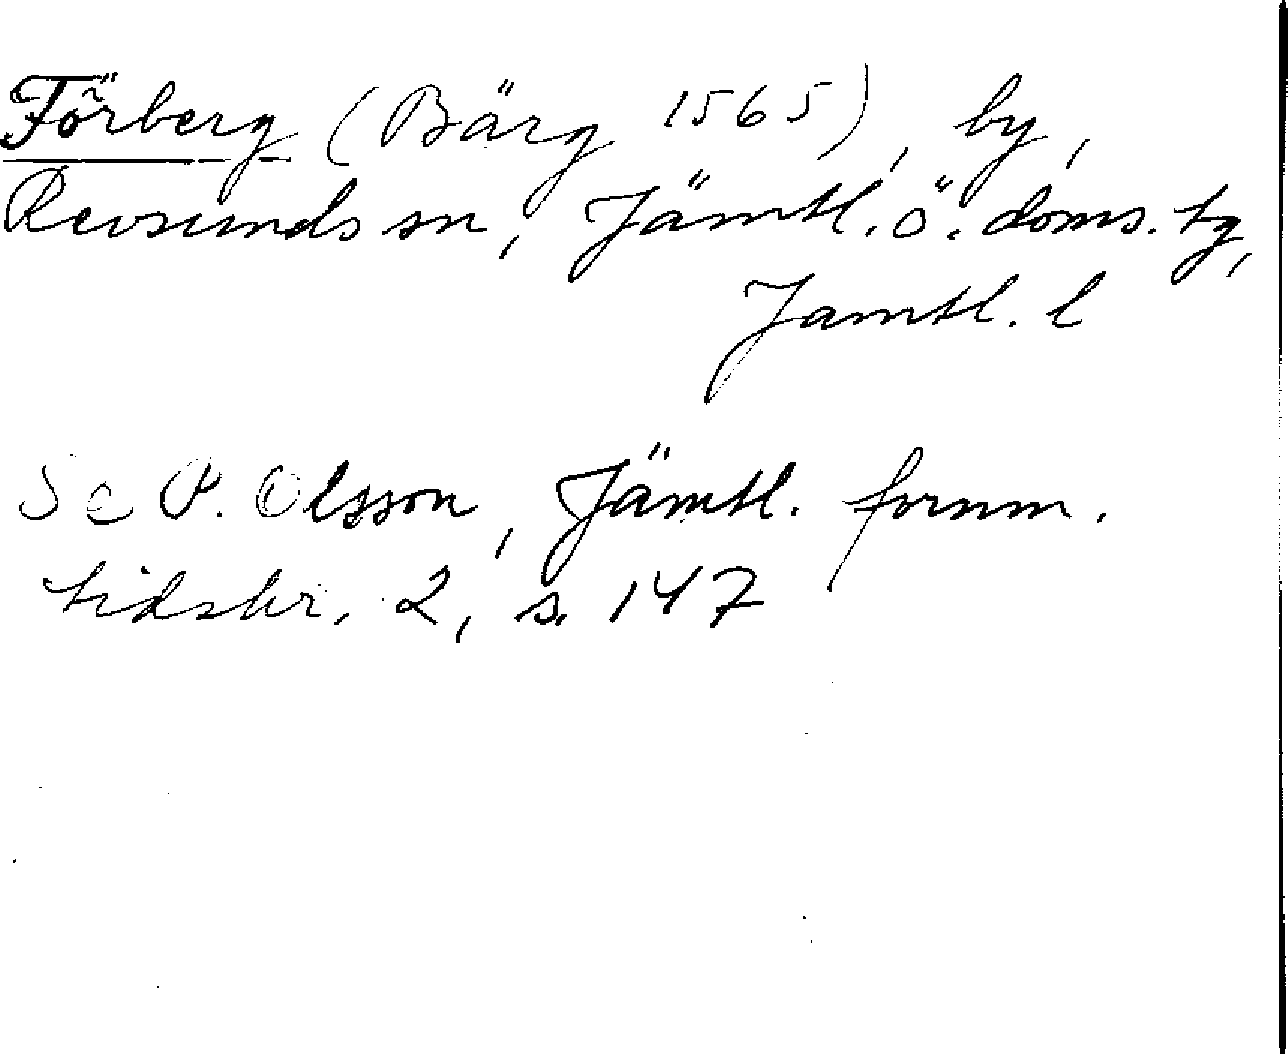 Förberg (Bärg 1565), by,
Revsunds sn, Jämtl. ö. doms. tg,
Jamtl. l
Se P. Olsson, Jämtl. fornm.
tidskr. 2, s. 147